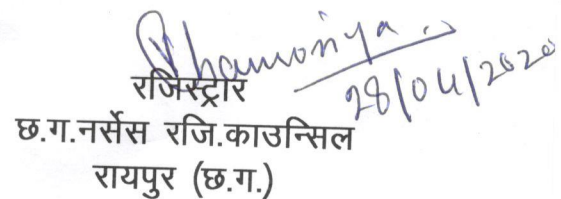 28/04/2020
रजिस्ट्रार
छ.ग.नर्सेस रजि.काउन्सिल
रायपुर (छ.ग.)